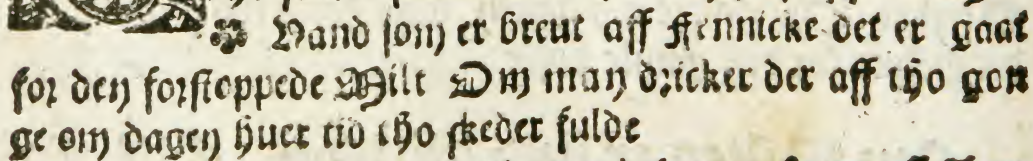 Vand som er brent aff fennicke det er gaat
for den forstoppede Milt Om man dricker der aff tho gon
ge om dagen huer tid tho skeder fulde